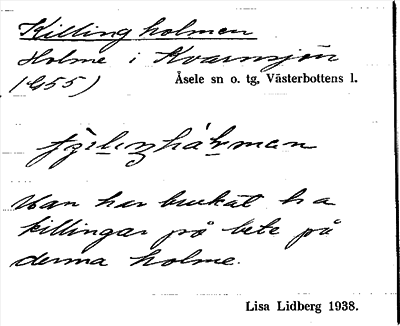 Killingholmen
Holme i Kvarnsjön
(G55) Åsele sn o. tg, Västerbottens l.
Man har brukat ha
killingar på bete på
denna holme.
Lisa Lidberg 1938.